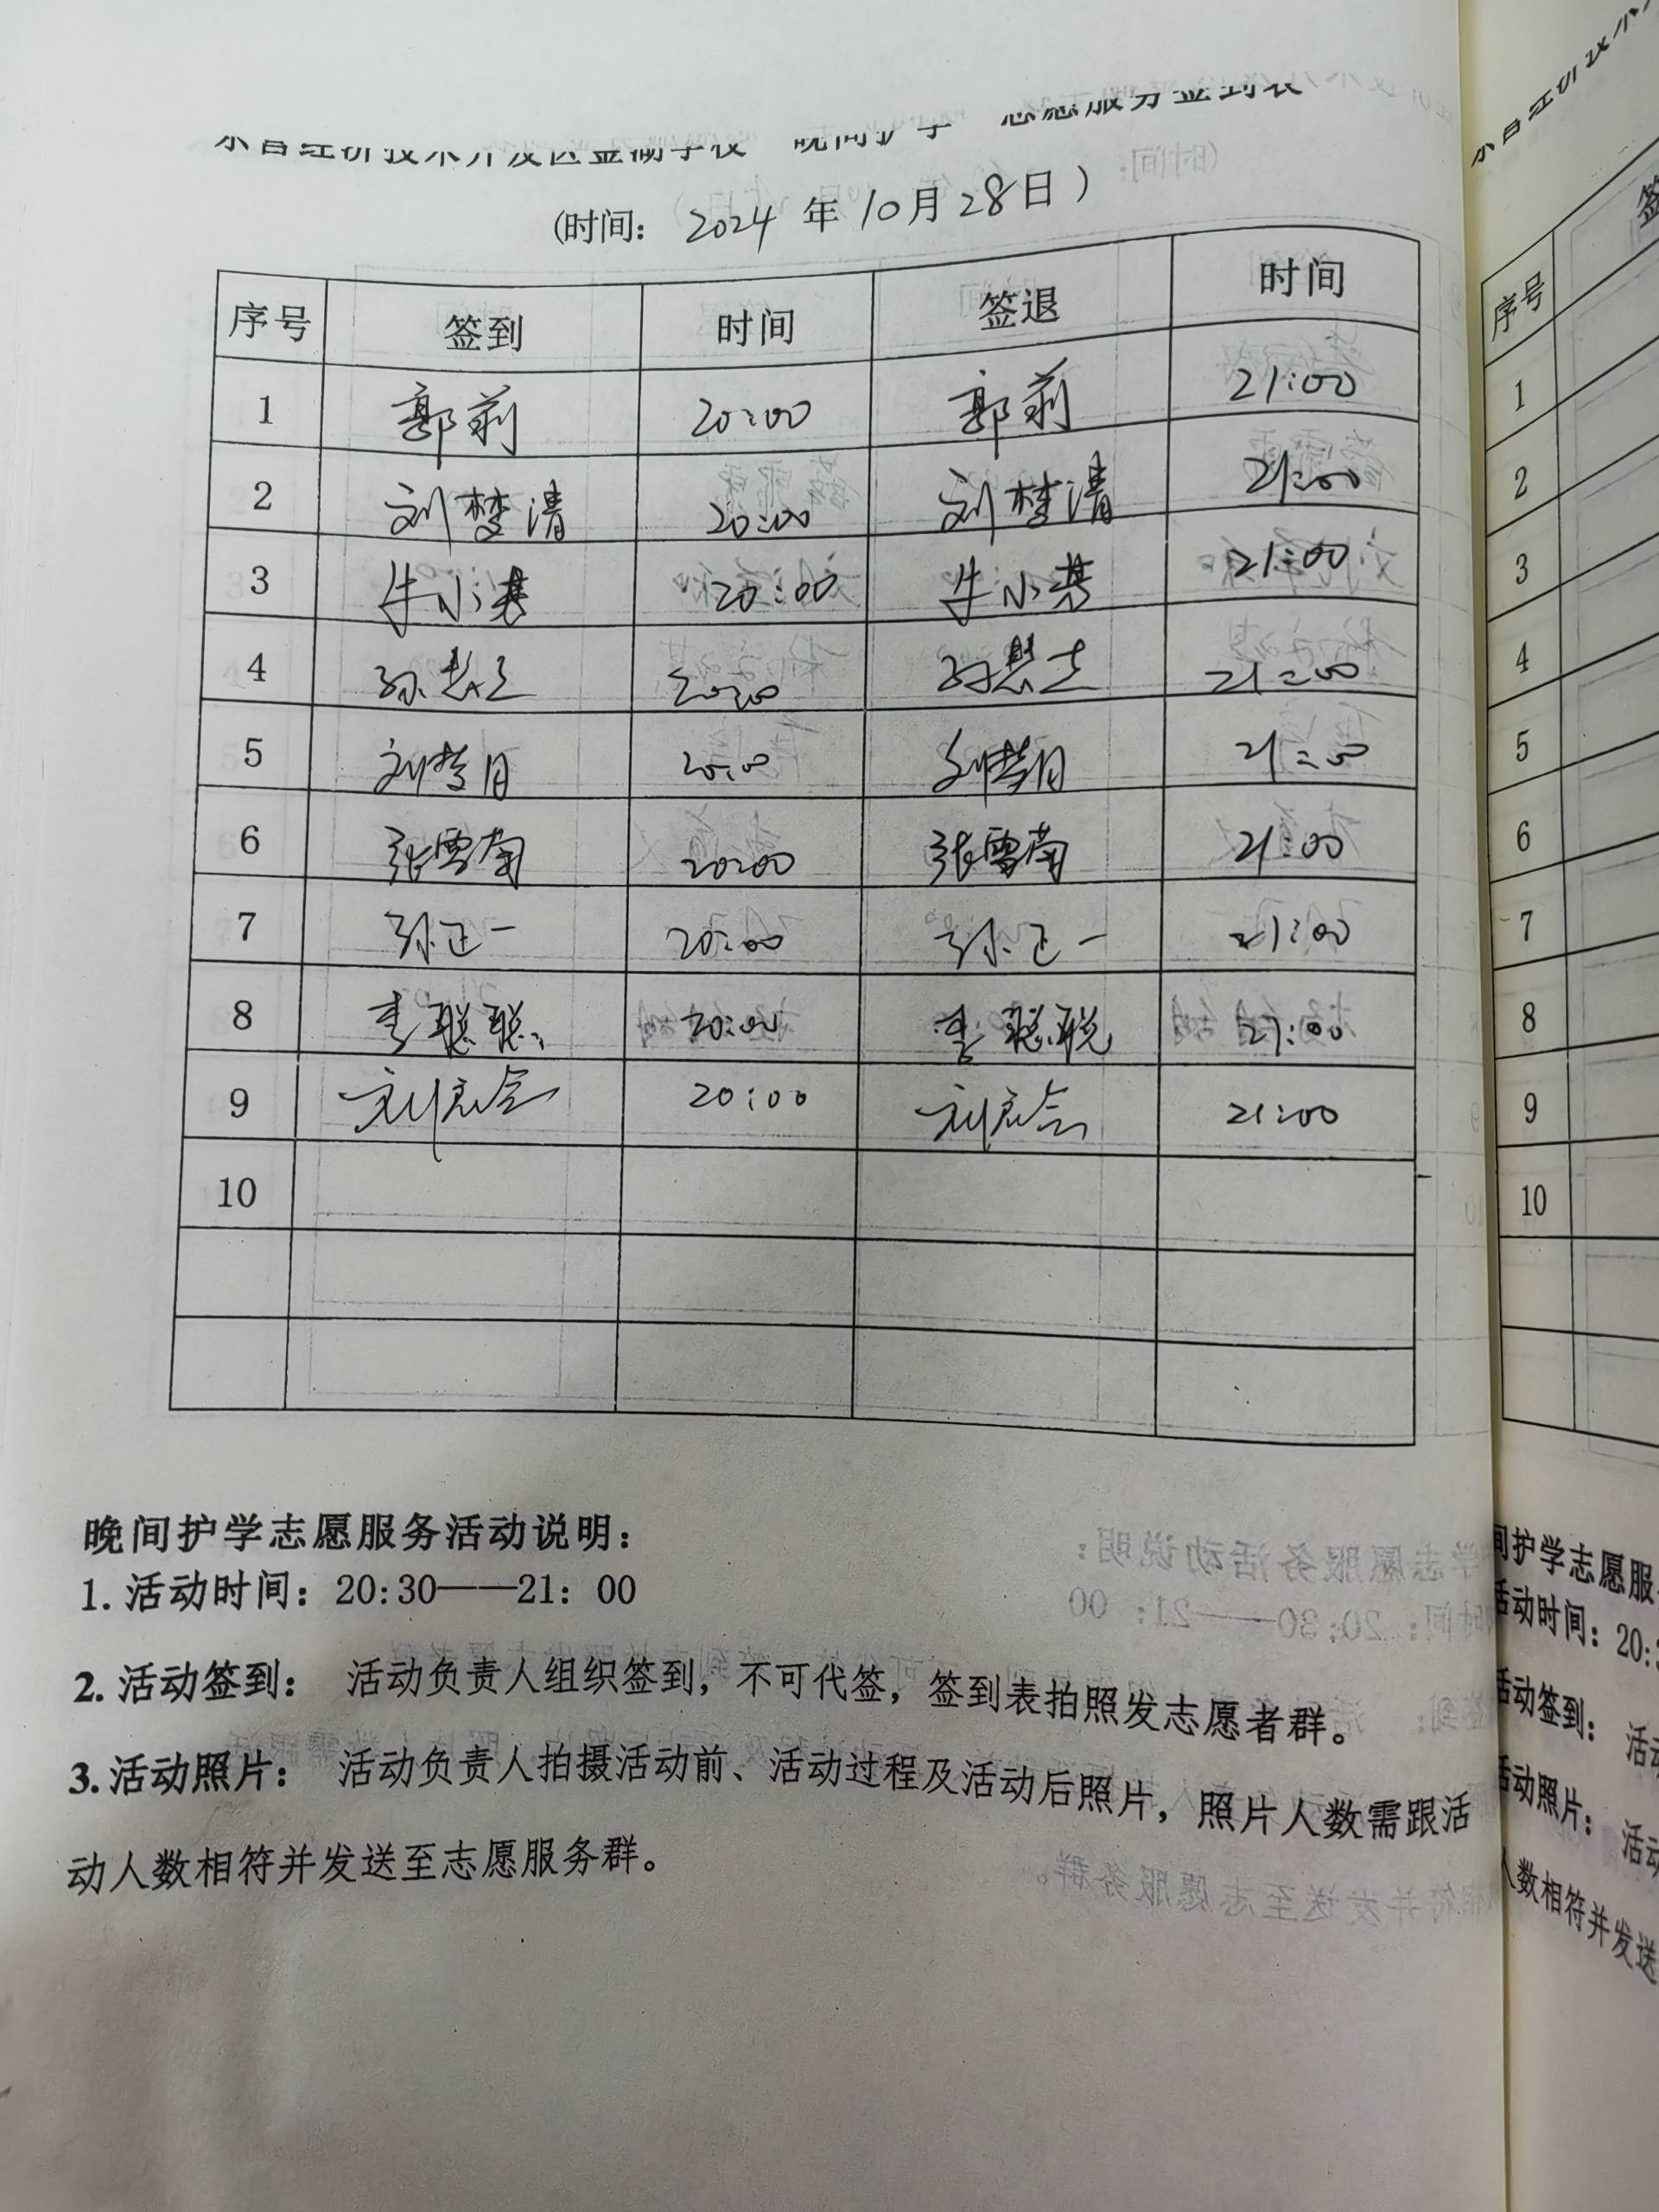 (时间: 2024 年 10月 28日 )
序号 签到 时间 签退 时间
1 郭莉 20:00 郭莉 21:00
2 刘梦清 20:00 刘梦清 21:00
3 牛小 20:00 牛小 21:00
4 孙 20:00 孙 21:00
5 刘梦月 20:00 刘梦月 21:00
6 张雪菊 20:00 张雪菊 21:00
7 孙正一 20:00 孙正一 21:00
8 李聪聪 20:00 李聪聪 21:00
9 刘 20:00 刘 21:00
10
晚间护学志愿服务活动说明：
1. 活动时间：20:30——21：00
2. 活动签到： 活动负责人组织签到，不可代签，签到表拍照发志愿者群。
3. 活动照片： 活动负责人拍摄活动前、活动过程及活动后照片，照片人数需跟活
动人数相符并发送至志愿服务群。
序号
1
2
3
4
5
6
7
8
9
10
间护学志愿服
活动时间：20:
活动签到： 活
活动照片： 活
人数相符并发送